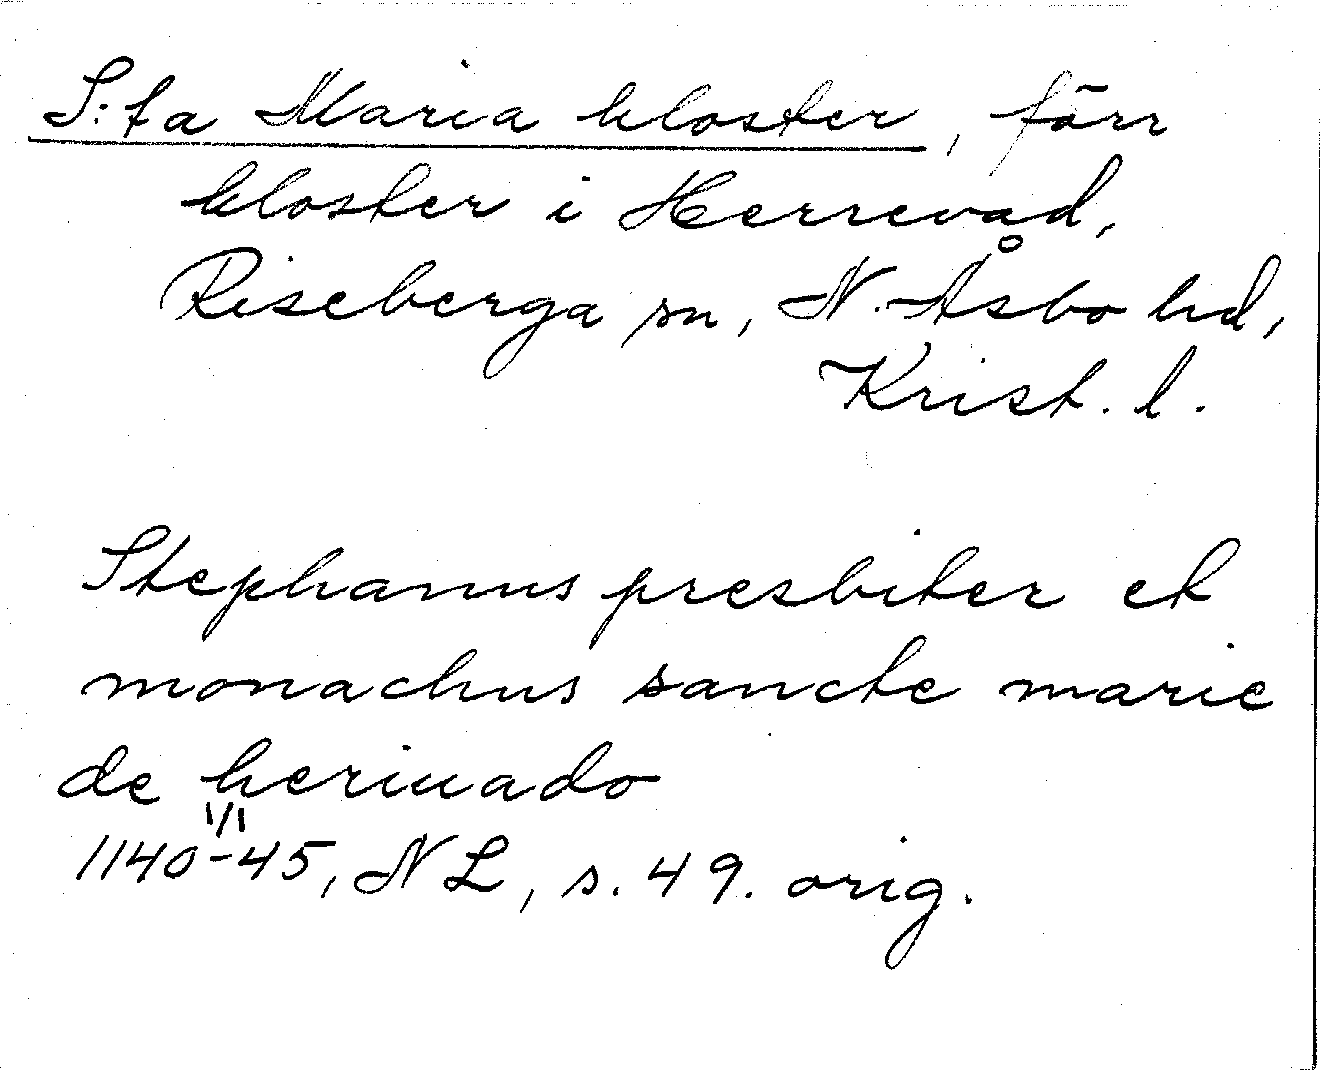 S:ta Maria kloster, förr
kloster i Herrevad,
Riseberga sn, N. Åsbo hd,
Krist. l.
Stephanus presbiter et
monachus sancte marie
de heriuado
1/1
1140-45, NL, s. 49. orig.